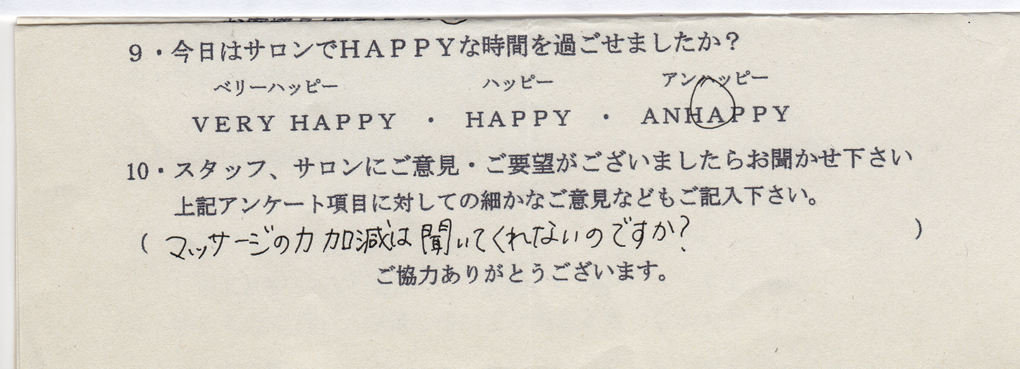 9・今日はサロンでHAPPYな時間を過ごせましたか？
ベリーハッピー　ハッピー　アンハッピー
VERY HAPPY ・ HAPPY ・ ANHAPPY
10・スタッフ、サロンにご意見・ご要望がございましたらお聞かせ下さい
上記アンケート項目に対しての細かなご意見などもご記入下さい。
( マッサージの力加減は聞いてくれないのですか? )
ご協力ありがとうございます。